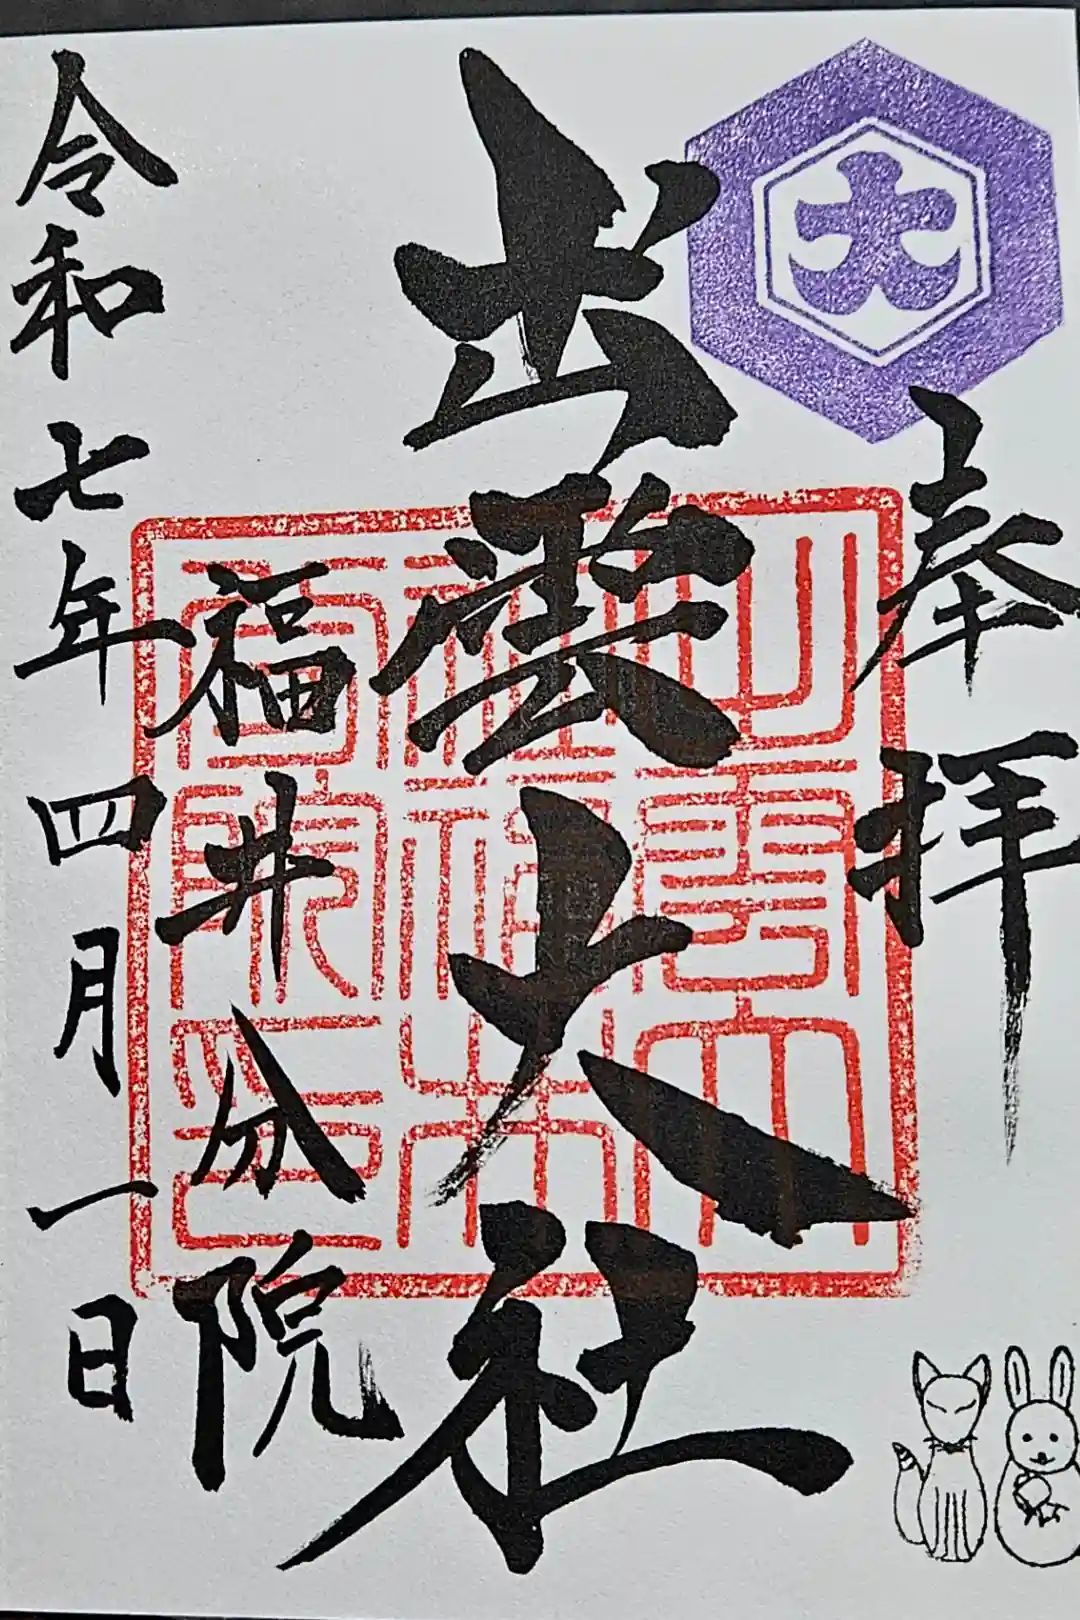 大
奉拝
出雲大社
福井分院
令和七年四月一日
出雲大
社福井
分院印